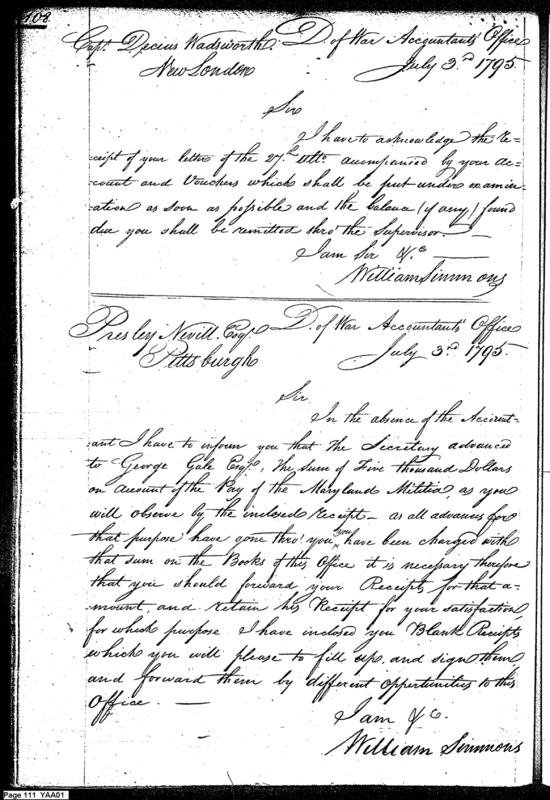 108
Capt. Decius Wadsworth. D. of War Accountants' Office
New London July 3d 1795
Sir
I have to acknowledge the Re=
=ceipt of your letter of the 27th Ulto. accompanied by your ac=
=count and Vouchers which shall be put under examin=
=ation as soon as possible and the balance (if any) found
due you shall be remitted thro' the Supervisor. —
I am Sir &c
William Simmons
Presley Nevill. Esqr. D. of War Accountants' Office
Pittsburgh July 3d 1795.
Sir
In the absence of the Account-
-ant I have to inform you that the Secretary advanced
to George Gale Esqr. the sum of Five thousand Dollars
on account of the Pay of the Maryland Militia as you
will observe by the inclosed Receipt — as all advances for
that purpose have gone thro' you, you have been charged with
that sum on the Books of this Office it is necessary therefore
that you should forward your Receipts for that a=
=mount, and retain his Receipt for your satisfaction,
for which purpose I have inclosed you Blank Receipts
which you will please to fill up, and sign them,
and forward them by different opportunities to this
Office. —
I am &c.
William Simmons
Page 111 YAA01